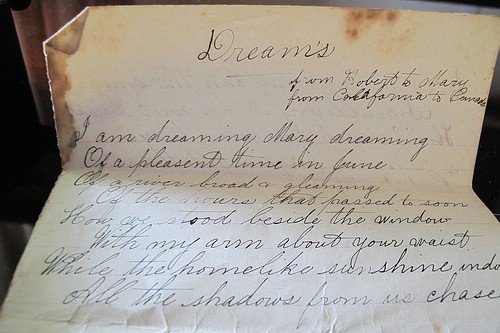 Dream's
from Robert to Mary
from California to Canada
I am dreaming Mary dreaming
Of a pleasent time in June
Of a river broad & gleaming
Of the hours that passed to soon
How we stood beside the window
With my arm about your waist.
While the homelike sunshine
All the shadows from us chase